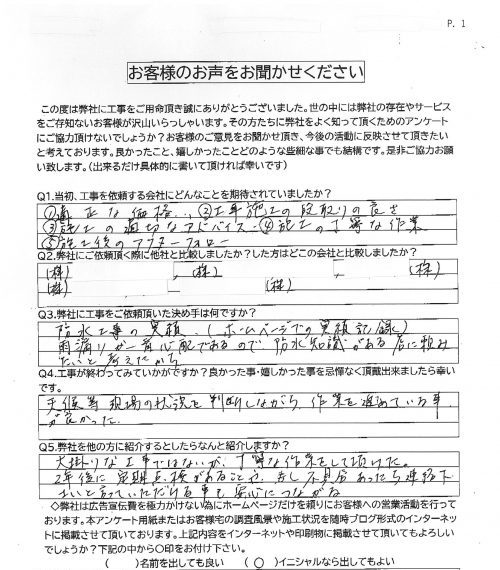 P. 1
お客様のお声をお聞かせください
この度は弊社に工事をご用命頂き誠にありがとうございました。世の中には弊社の存在やサービス
をご存知ないお客様が沢山いらっしゃいます。その方たちに弊社をよく知って頂くためのアンケート
にご協力頂けないでしょうか？お客様のご意見をお聞かせ頂き、今後の活動に反映させて頂きたい
と考えております。良かったこと、嬉しかったことどのような些細な事でも結構です。是非ご協力お願
い致します。（出来るだけ具体的に書いて頂ければ幸いです）
Q1.当初、工事を依頼する会社にどんなことを期待されていましたか？
①適正な価格、②工事施工の段取りの良さ
③施工の適切なアドバイス、④施工の丁寧な作業
⑤施工後のアフターフォロー
Q2.弊社にご依頼頂く際に他社と比較しましたか？した方はどこの会社と比較しましたか？
(株) , (株) , (株)
(株) (株)
Q3.弊社に工事をご依頼頂いた決め手は何ですか？
防水工事の実績、（ホームページでの実績記録）
雨漏りが一番心配であるので防水知識がある店に頼み
たいと考えたから
Q4.工事が終わってみていかがですか？良かった事・嬉しかった事を忌憚なく頂戴出来ましたら幸い
です。
天候等現場の状況を判断しながら作業を進めている事
が良かった
Q5.弊社を他の方に紹介するとしたらなんと紹介しますか？
大掛りな工事ではないが、丁寧な作業をして頂けた。
2年後に定期点検があることや、もし不具合あったら連絡下
さいと言っていただける事も安心につながる
◇弊社は広告宣伝費を極力かけない為にホームページだけを頼りにお客様への営業活動を行って
おります。本アンケート用紙またはお客様宅の調査風景や施工状況を随時ブログ形式のインターネッ
トに掲載させて頂いております。上記内容をインターネットや印刷物に掲載させて頂いてもよろしい
でしょうか？下記の中から〇印をお付け下さい。
（　　）名前を出しても良い （ 〇 ）イニシャルなら出してもよい